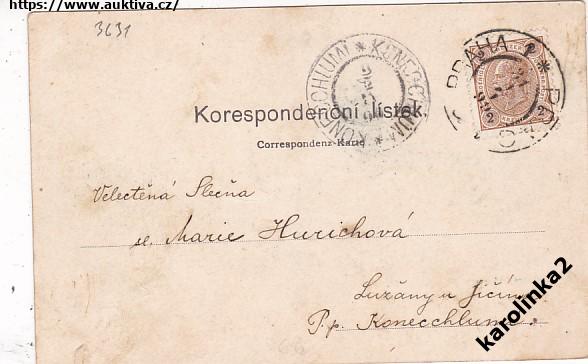 https://www.auktiva.cz/
3631
KONECCHLUM * KONECCHLUM *
PRAHA
2 2
Korespondenční lístek
Correspondenz-Karte
Velectěná Slečna
sl. Marie Hurichová
Lužany u Jičína
P.p. Konecchlum.
karolinka2